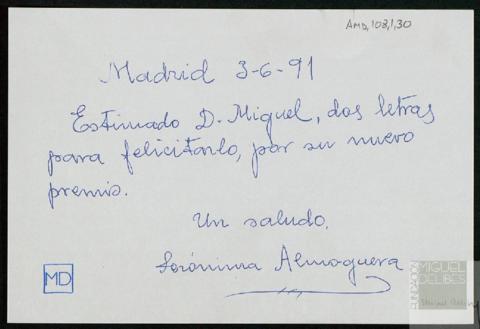 AMD, 108,1,30
Madrid 3-6-91
Estimado D. Miguel, dos letras
para felicitarlo, por su nuevo
premio.
Un saludo,
Jerónima Almoguera
MD
FUNDACIÓN
MIGUEL
DELIBES